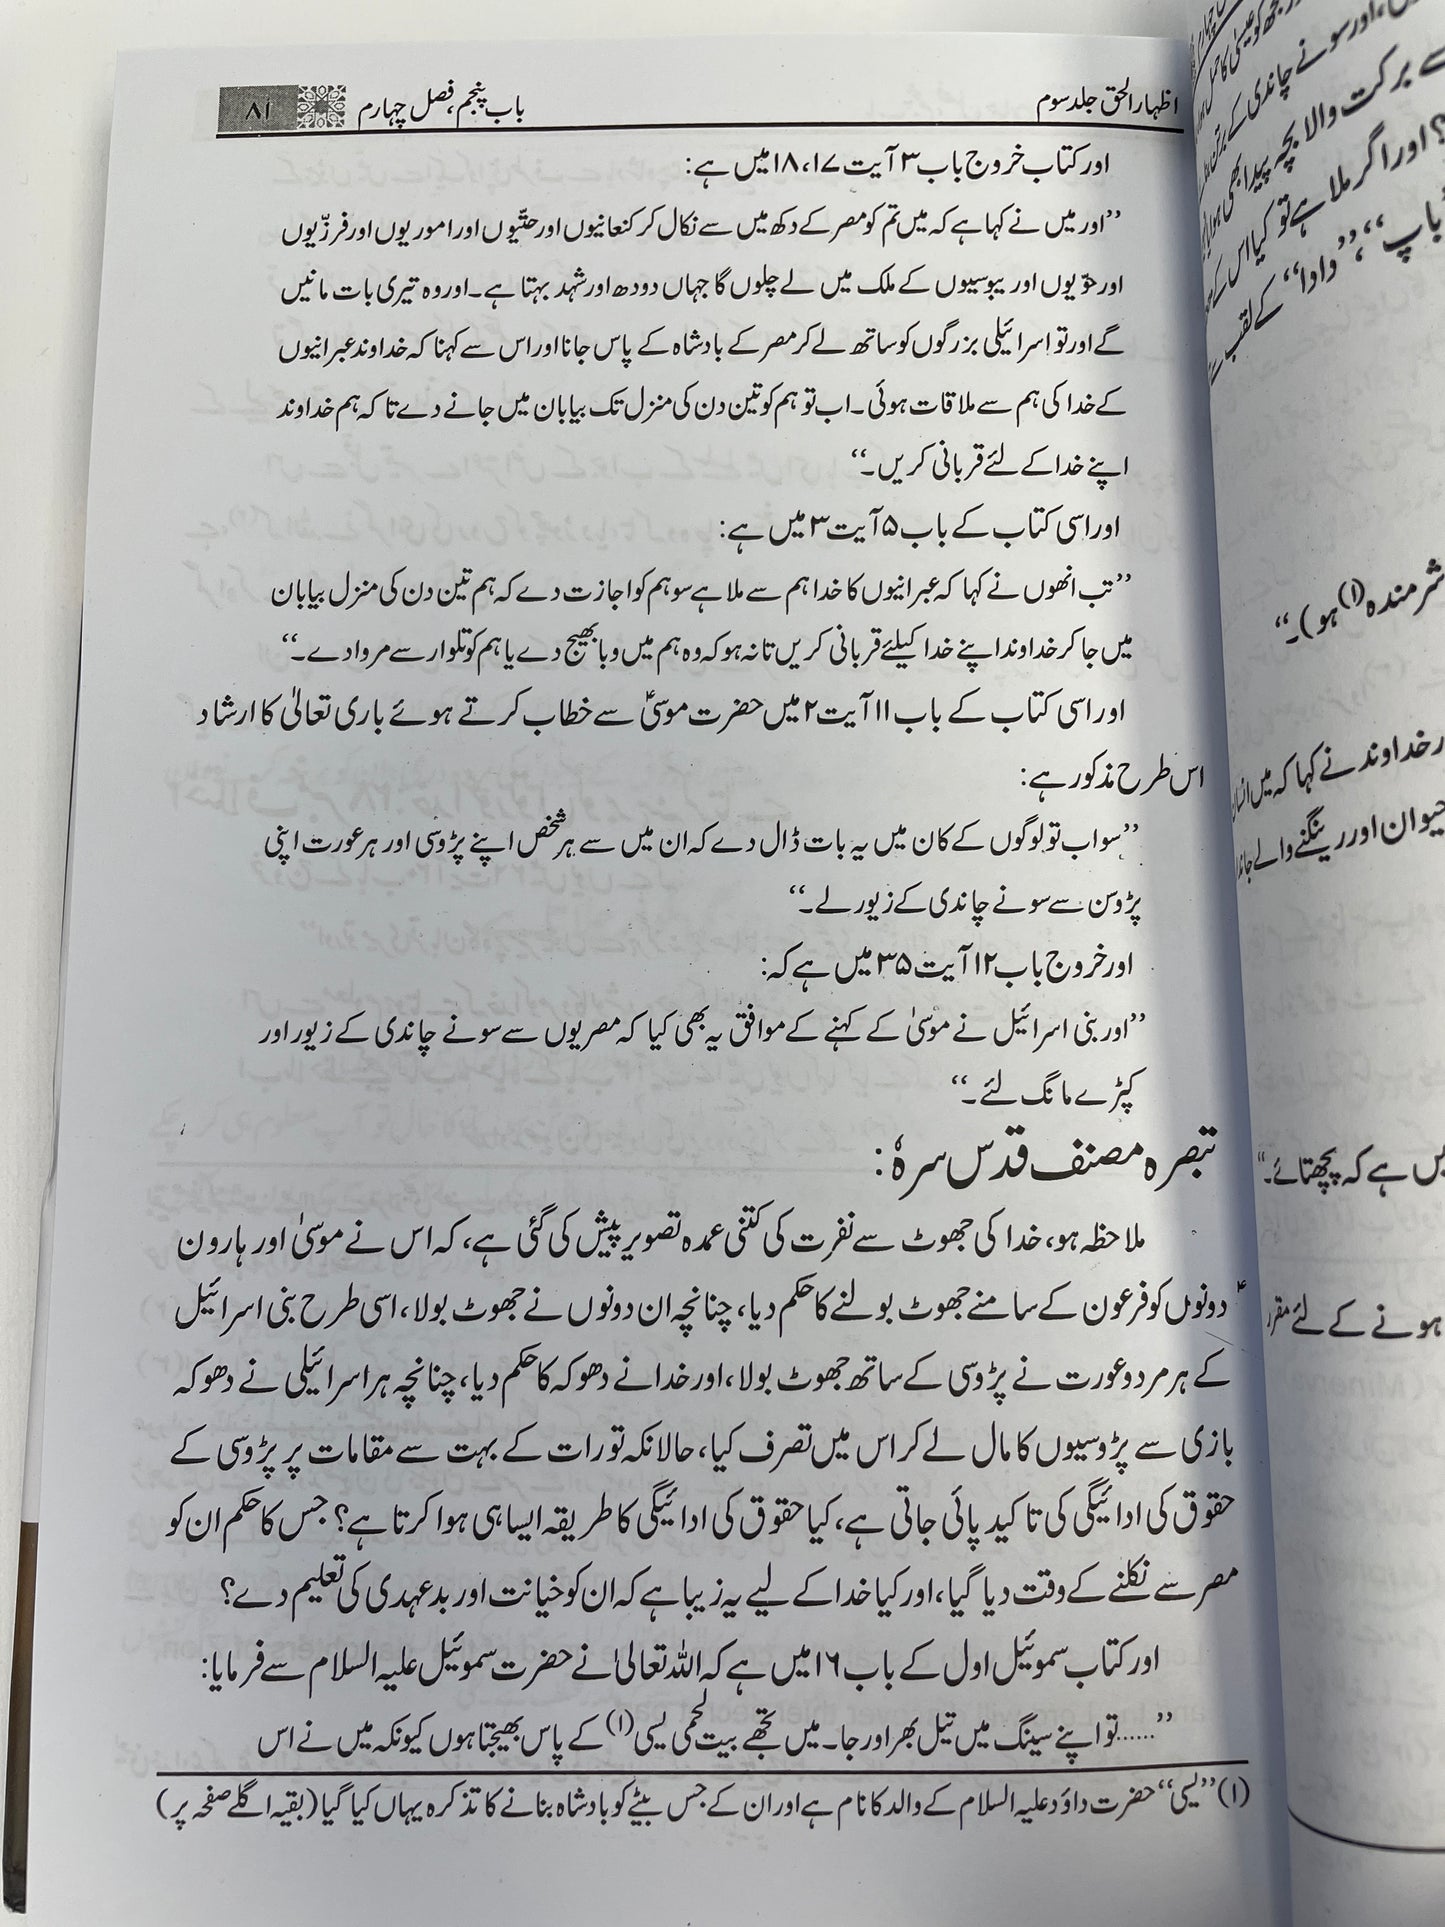 اظہار الحق جلد سوم باب پنجم، فصل چہارم ۸۱
اور کتاب خروج باب ۳ آیت ۱۷، ۱۸ میں ہے:
”اور میں نے کہا ہے کہ میں تم کو مصر کے دکھ میں سے نکال کر کنعانیوں اور حتّیوں اور اموریوں اور فرزّیوں
اور حوّیوں اور یبوسیوں کے ملک میں لے چلوں گا جہاں دودھ اور شہد بہتا ہے۔ اور وہ تیری بات مانیں
گے اور تو اسرائیلی بزرگوں کو ساتھ لے کر مصر کے بادشاہ کے پاس جانا اور اس سے کہنا کہ خداوند عبرانیوں
کے خدا کی ہم سے ملاقات ہوئی۔ اب تو ہم کو تین دن کی منزل تک بیابان میں جانے دے تا کہ ہم خداوند
اپنے خدا کے لئے قربانی کریں۔“
اور اسی کتاب کے باب ۵ آیت ۳ میں ہے:
”تب انھوں نے کہا کہ عبرانیوں کا خدا ہم سے ملا ہے سو ہم کو اجازت دے کہ ہم تین دن کی منزل بیابان
میں جا کر خداوند اپنے خدا کیلئے قربانی کریں تا نہ ہو کہ وہ ہم میں وبا بھیج دے یا ہم کو تلوار سے مروا دے۔“
اور اسی کتاب کے باب ۱۱ آیت ۲ میں حضرت موسیٰؑ سے خطاب کرتے ہوئے باری تعالیٰ کا ارشاد
اس طرح مذکور ہے:
”سو اب تو لوگوں کے کان میں یہ بات ڈال دے کہ ان میں سے ہر شخص اپنے پڑوسی اور ہر عورت اپنی
پڑوسن سے سونے چاندی کے زیور لے۔“
اور خروج باب ۱۲ آیت ۳۵ میں ہے کہ:
”اور بنی اسرائیل نے موسیٰ کے کہنے کے موافق یہ بھی کیا کہ مصریوں سے سونے چاندی کے زیور اور
کپڑے مانگ لئے۔“
تبصرہ مصنف قدس سرہٗ:
ملاحظہ ہو، خدا کی جھوٹ سے نفرت کی کتنی عمدہ تصویر پیش کی گئی ہے، کہ اس نے موسیٰ اور ہارون
دونوں کو فرعون کے سامنے جھوٹ بولنے کا حکم دیا، چنانچہ ان دونوں نے جھوٹ بولا، اسی طرح بنی اسرائیل
کے ہر مرد و عورت نے پڑوسی کے ساتھ جھوٹ بولا، اور خدا نے دھوکہ کا حکم دیا، چنانچہ ہر اسرائیلی نے دھوکہ
بازی سے پڑوسیوں کا مال لے کر اس میں تصرف کیا، حالانکہ تورات کے بہت سے مقامات پر پڑوسی کے
حقوق کی ادائیگی کی تاکید پائی جاتی ہے، کیا حقوق کی ادائیگی کا طریقہ ایسا ہی ہوا کرتا ہے؟ جس کا حکم ان کو
مصر سے نکلنے کے وقت دیا گیا، اور کیا خدا کے لیے یہ زیبا ہے کہ ان کو خیانت اور بدعہدی کی تعلیم دے؟
اور کتاب سموئیل اول کے باب ۱۶ میں ہے کہ اللہ تعالیٰ نے حضرت سموئیل علیہ السلام سے فرمایا:
”......تو اپنے سینگ میں تیل بھر اور جا۔ میں تجھے بیت لحمی یسی(۱) کے پاس بھیجتا ہوں کیونکہ میں نے اس
(۱) ”یسی“ حضرت داؤد علیہ السلام کے والد کا نام ہے اور ان کے جس بیٹے کو بادشاہ بنانے کا تذکرہ یہاں کیا گیا (بقیہ اگلے صفحہ پر)
اور سونے چاندی کے برتن
برکت والا بچہ پیدا بھی ہوا یا
؟ اور اگر ملا ہے تو کیا اس کے
باپ“، ”دادا“ کے لقب سے
شرمندہ(۱) ہو)۔“
خداوند نے کہا کہ میں انسان
حیوان اور رینگنے والے جاندار
ہے کہ پچھتائے۔“
ہونے کے لئے مقرر